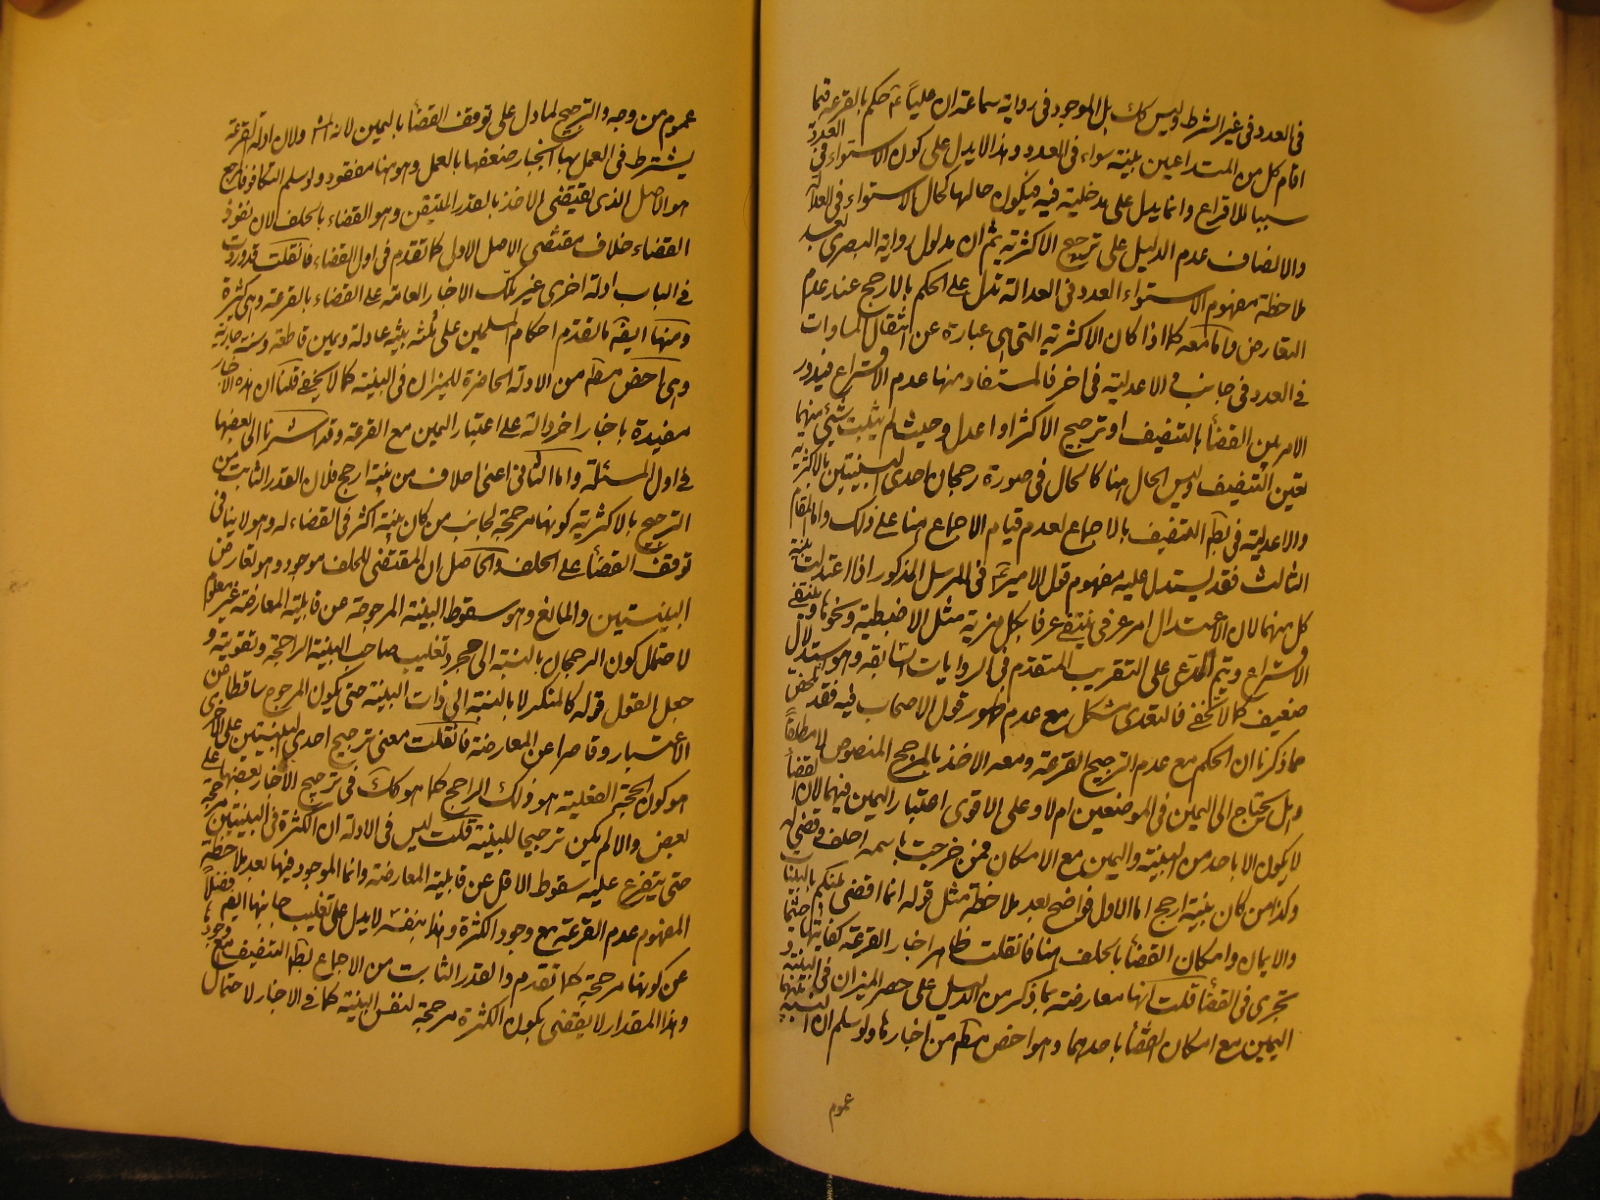 فى العدد و فى غير الشرط وليس كك بل الموجود فى رواية سماعة ان علياً ع حكم بالقرعة فيما
اقام كل من المتداعيين بينة سواء فى العدد و هذا لا يدل على كون الاستواء فى العدد
سببا للاقراع و انما يدل على مدخلية فيه فيكون حالها كحال الاستواء فى العدالة
والانصاف عدم الدليل على ترجيح الاكثرية ثم ان مدلول رواية البصرى بعد
ملاحظة مفهوم الاستواء العدد فى العدالة تدل على الحكم بالارجح عند عدم
التعارض واما معه كما اذا كان الاكثرية التى هى عبارة عن انتقال المساوات
فى العدد فى جانب و الاعدلية فى اخر فالمستفاد منها عدم الاقتراع فيدور
الامر بين القضاء بالتنصيف او ترجيح الاكثر او اعدل و حيث لم يثبت شئ منهما
تعين التنصيف وليس الحال هنا كالحال فى صورة رجحان احدى البينتين بالاكثرية
والاعدلية فى بطلان التنصيف بالاجماع لعدم قيام الاجماع هنا على ذلك واما المقام
الثالث فقد يستدل عليه مفهوم قول الامير ع فى المرسل المذكور اذا اعتدلت بينة
كل منهما لان الاعتدال امر عرفى ينتفى عرفا بكل مزية مثل الاضبطية ونحوها و ينتفى
الاقتراع ويتم المدعى على التقريب المتقدم فى الروايات السابقة وهو استدلال
ضعيف كما لا يخفى فالتعدى مشكل مع عدم ظهور قول الاصحاب فيه فقد تلخص
مما ذكرنا ان الحكم مع عدم الترجيح القرعة ومعه الاخذ بالمرجح المنصوص لا مطلقاً
وهل يحتاج الى اليمين فى الموضعين ام لا و على الاقوى اعتبار اليمين فيهما لان القضاء
لا يكون الا باحد من البينة واليمين مع الامكان فمن خرجت باسمه احلف و قضى له
وكذا من كان بينة ارجح اما الاول فواضح بعد ملاحظة مثل قوله انما اقضى بينكم بالبينات
والايمان وامكان القضاء بالحلف هنا فان قلت ظاهر اخبار القرعة كفايتها و حيثما
تجرى فى القضاء قلت انها معارضة بما ذكر من الدليل على حصر الميزان فى البينة و
اليمين مع امكان القضاء باحدهما وهو اخص مطلقا من اخبارها ولو سلم ان النسبة بينهما
عموم
عموم من وجه والترجيح لما دل على توقف القضاء باليمين لانه ولان ادلة القرعة
يشترط فى العمل بها انجبار ضعفها بالعمل وهو هنا مفقود ولو سلم التكافؤ فالمرجع
هو الاصل الذى يقتضى الاخذ بالقدر المتيقن وهو القضاء بالحلف لان نفوذ
القضاء خلاف مقتضى الاصل الاولى كما تقدم فى اول القضاء فان قلت قد وردت
فى الباب ادلة اخرى غير تلك الاخبار العامة على القضاء بالقرعة وهى كثيرة
ومنها ايضا ما تقدم احكام المسلمين على ثلثة بينة عادلة ويمين قاطعة وسنة جارية
وهى اخص مطلقا من الادلة الحاصرة للميزان فى البينة كما لا يخفى قلنا ان هذه الاخبار
مقيدة باخبار اخر دالة على اعتبار اليمين مع القرعة وقد اشرنا الى بعضها
فى اول المسئلة واما الثانى اعنى احلاف من بينة ارجح فلان القدر الثابت من
الترجيح بالاكثرية كونها مرجحة لجانب من كان بينة اكثر فى القضاء له وهو لا ينافى
توقف القضاء على الحلف والحاصل ان المقتضى للحلف موجود وهو تعارض
البينتين والمانع وهو سقوط البينة المرجوحة عن قابلية المعارضة غير معلوم
لاحتمال كون الرجحان بالنسبة الى مجرد تغليب صاحب البينة الراجحة وتقويته و
جعل القول قوله كالمنكر لا بالنسبة الى ذات البينة حتى يكون المرجوح ساقطا عن
الاعتبار وقاصرا عن المعارضة فان قلت معنى ترجيح احدى البينتين على الاخرى
هو كون الحجة الفعلية هو ذلك الراجح كما هو كك فى ترجيح الاخبار بعضها على
بعض والا لم يكن ترجيحا للبينة قلت ليس فى الادلة ان الكثرة فى البينتين مرجحة
حتى يتفرع عليه سقوط الاقل عن قابلية المعارضة وانما الموجود فيها بعد ملاحظة
المفهوم عدم القرعة مع وجود الكثرة وهذا بنفسه لا يدل على تغليب جانبها ايضا فضلاً
عن كونها مرجحة كما تقدم والقدر الثابت من الاجماع بطلان التنصيف مع وجودها
وهذا المقدار لا يقضى بكون الكثرة مرجحة لنفس البينة كما فى الاخبار لاحتمال